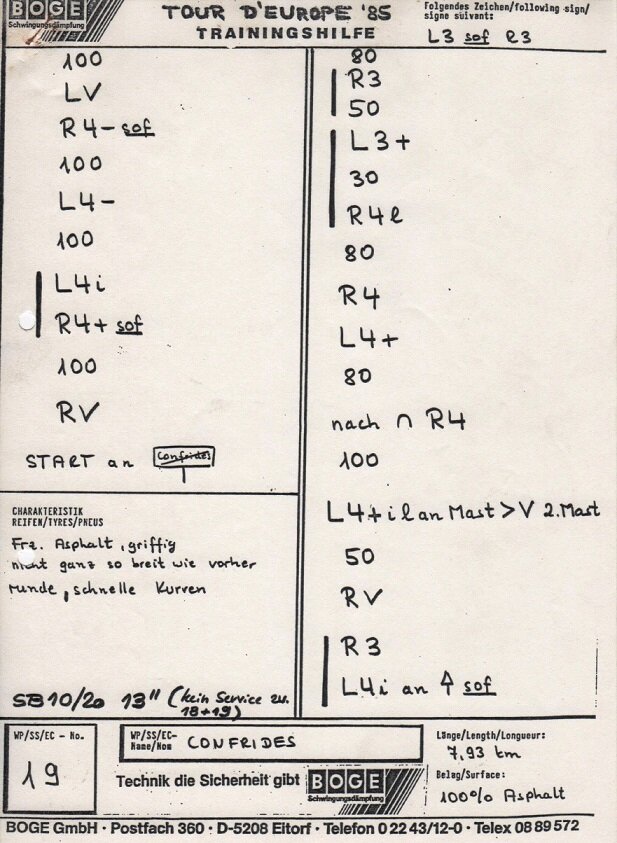 BOGE
Schwingungsdämpfung
TOUR D'EUROPE '85
TRAININGSHILFE
Folgendes Zeichen/following sign/
signe suivant:
L3 sof R3
100
LV
R4- sof
100
L4-
100
L4i
R4+ sof
100
RV
START an Confrides
CHARAKTERISTIK
REIFEN/TYRES/PNEUS
Frz. Asphalt, griffig
nicht ganz so breit wie vorher
runde, schnelle Kurven
SB10/20 13" (kein Service zw.
18+19)
80
R3
50
L3+
30
R4l
80
R4
L4+
80
nach ∩ R4
100
L4+ i l an Mast > V 2. Mast
50
RV
R3
L4i an sof
WP/SS/EC - No.
19
WP/SS/EC-
Name/Nom
CONFRIDES
Länge/Length/Longueur:
7,93 km
Technik die Sicherheit gibt
BOGE
Schwingungsdämpfung
Belag/Surface:
100% Asphalt
BOGE GmbH · Postfach 360 · D-5208 Eitorf · Telefon 0 22 43/12-0 · Telex 08 89 572